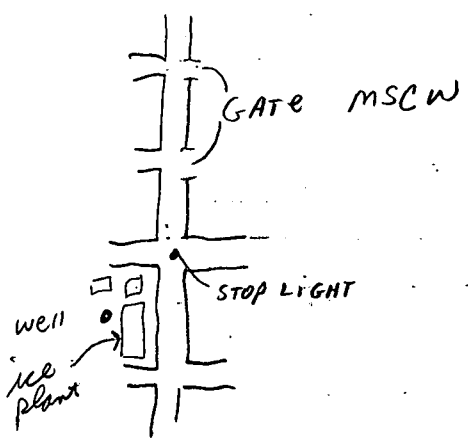 GATe MSCW
STOP LiGHT
well
ice
plant